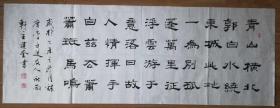 青山橫北
郭白水繞
東城此地
一為別孤
蓬萬里征
浮雲游子
意落日故
人情揮手
自茲去蕭
蕭班馬鳴
唐李白送友人
書